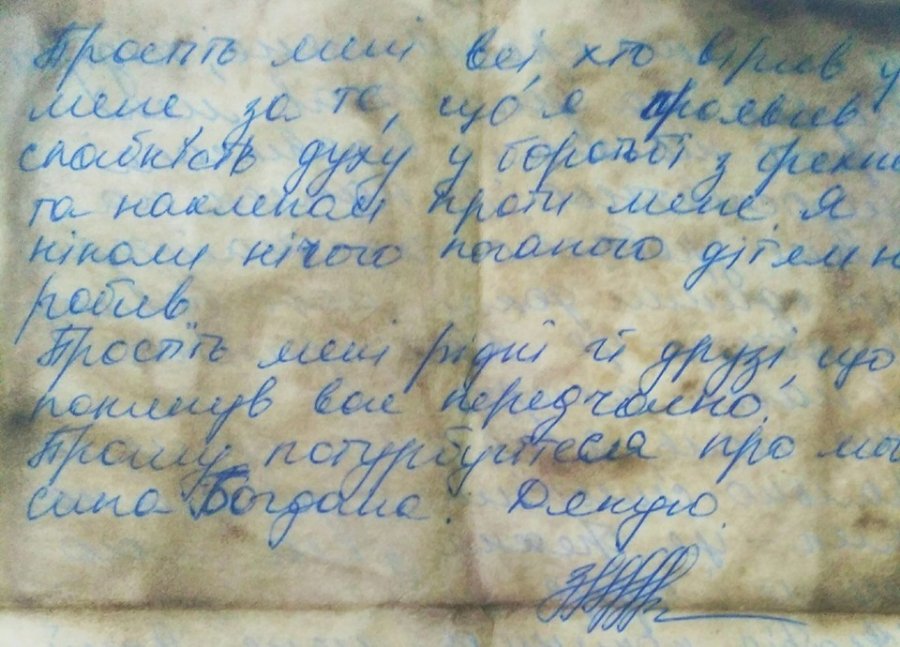 Простіть мені всі, хто вірив у
мене за те, що я проявив
слабкість духу у боротьбі з брехн
та наклепабі проти мене я
ніколи нічого поганого дітям н
робив
Простіть мені рідні й друзі, що
покинув вас передчасно.
Прошу потурбуйтеся про мо
сина Богдана. Дякую